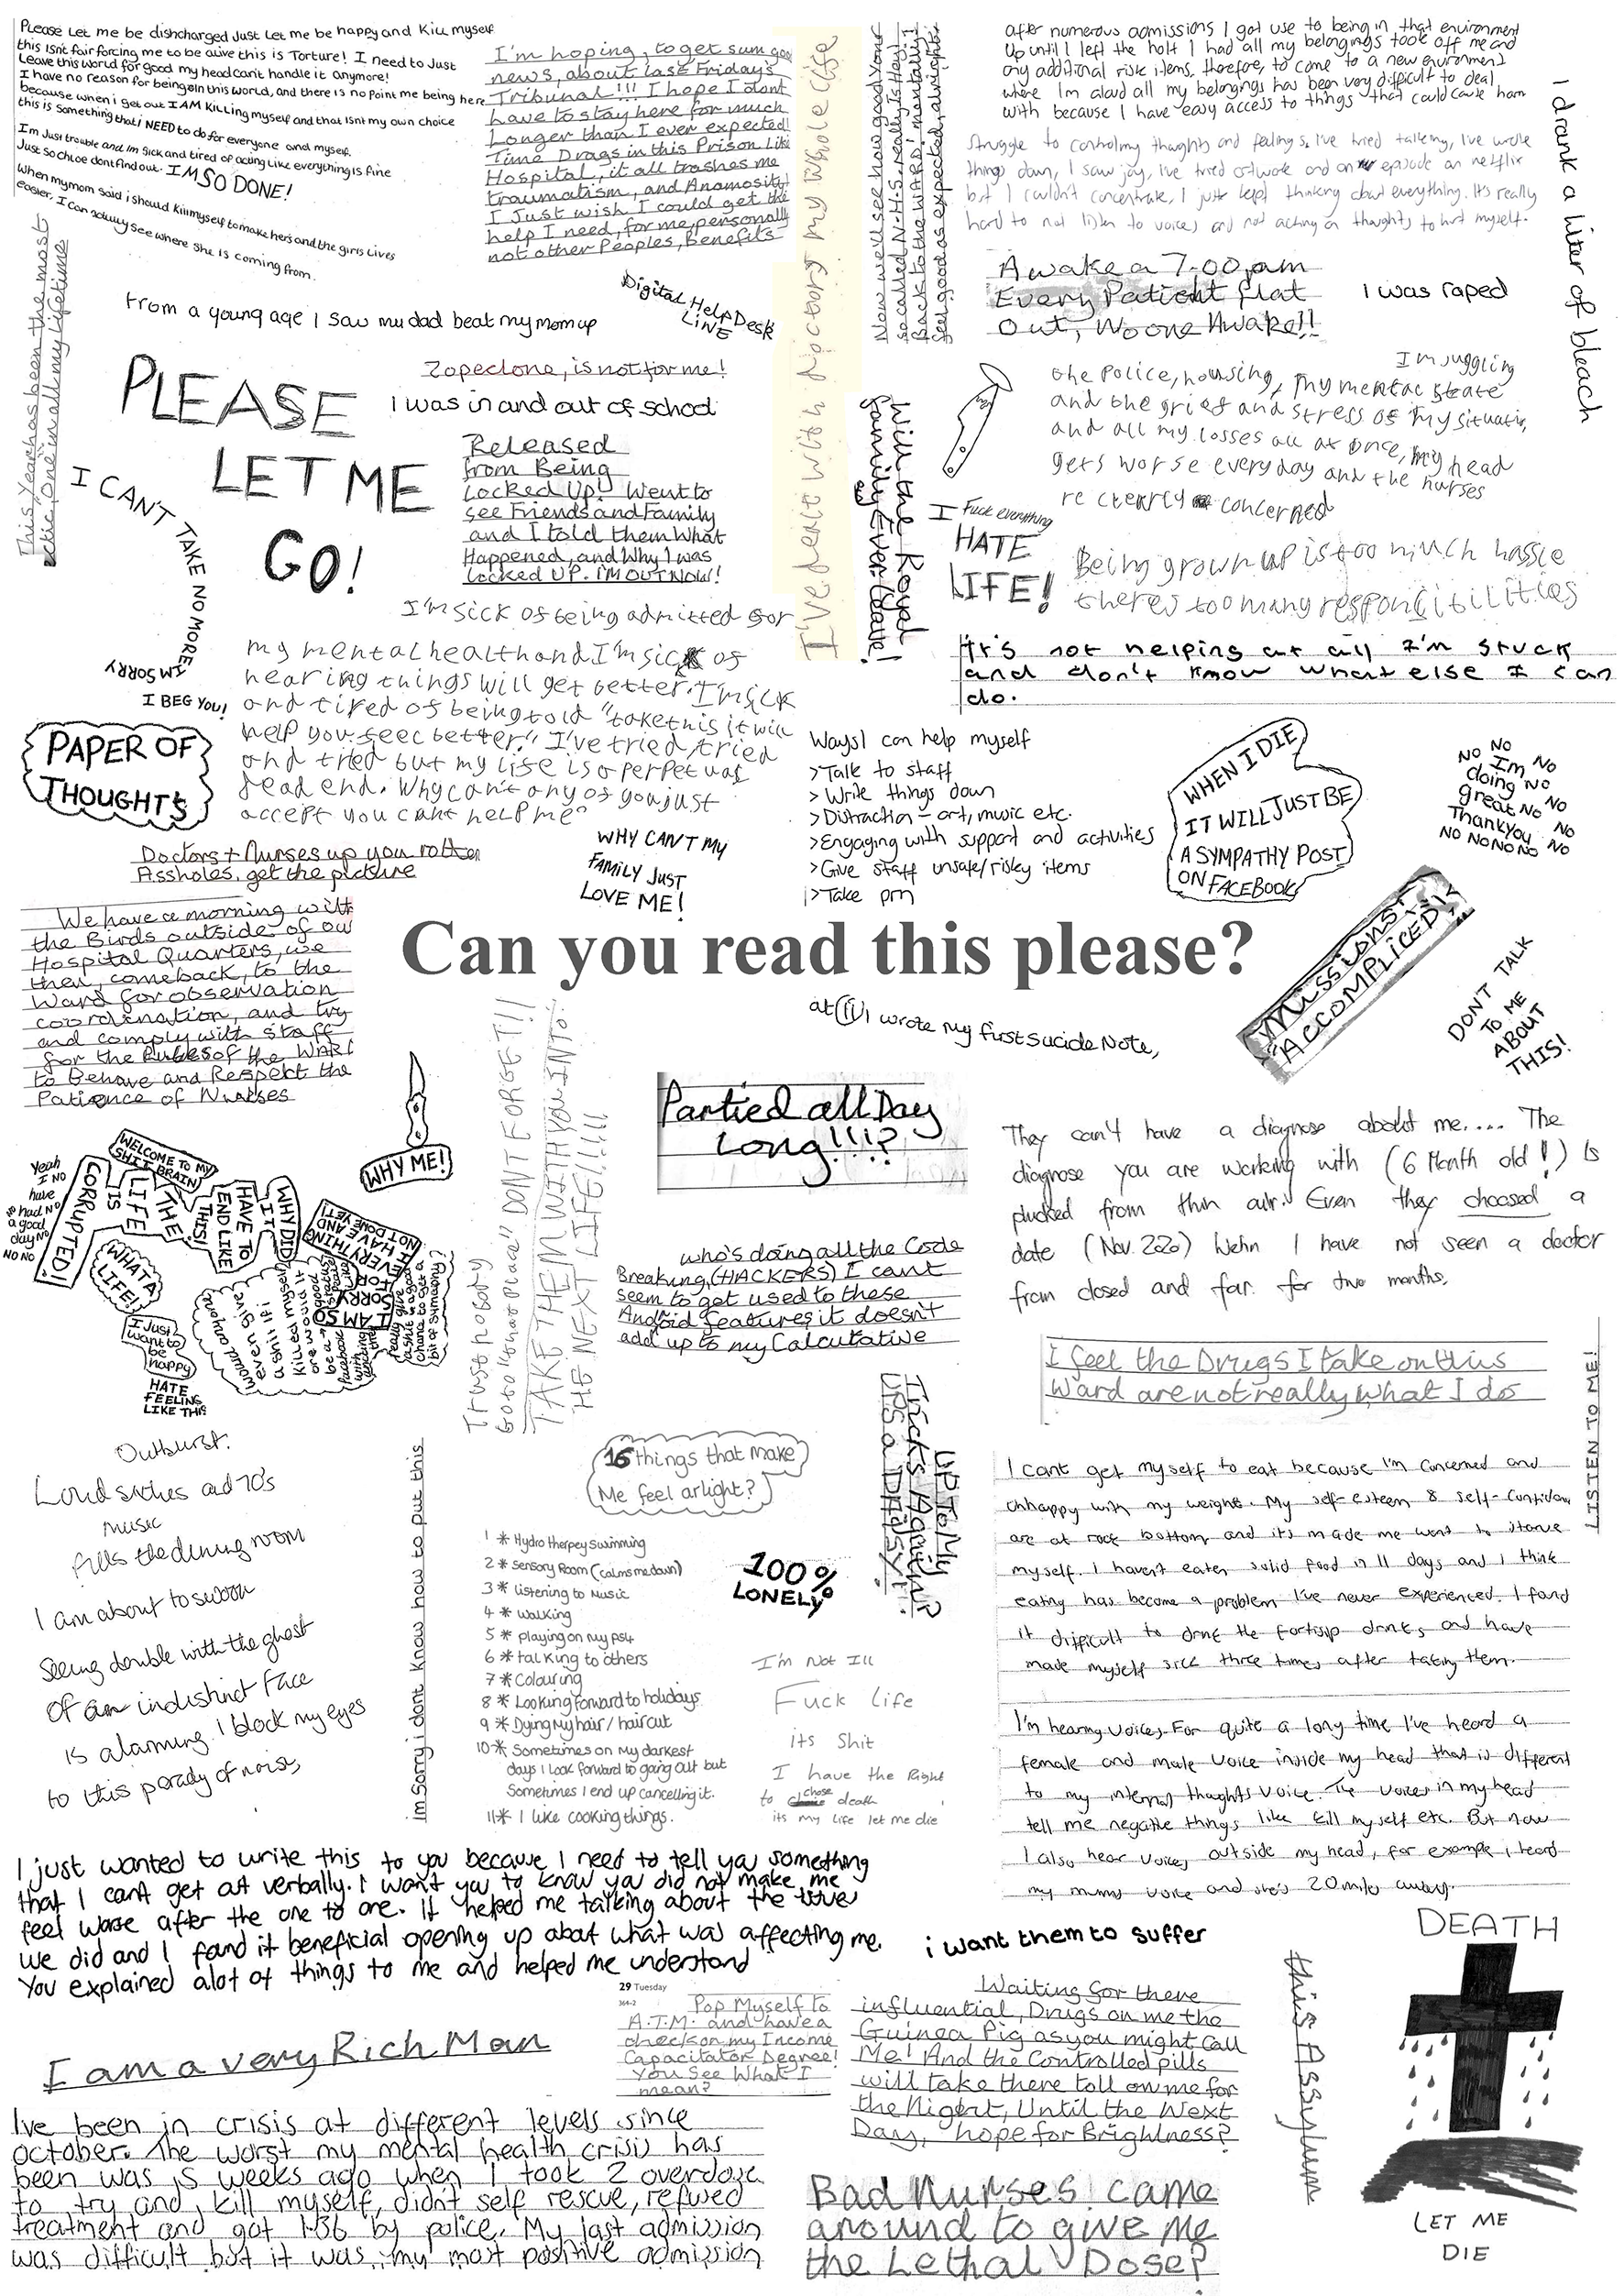 Please Let me be dishcharged Just Let me be happy and Kill myself
this isnt fair forcing me to be alive this is Torture! I need to Just
Leave this world for good my head cant handle it anymore!
I have no reason for beingein this world, and there is no point me being here
because when i get out I AM Killing myself and that isnt my own choice
this is something that i NEED to do for everyone and myself.
Im Just trouble and im sick and tired of acting like everything is fine
Just so chloe dont find out. I'M SO DONE!
When my mom said i should kill myself to make hers and the girls lives
easier, I can actually see where she is coming from.
I'm hoping, to get sum goo
news, about last Friday's
Tribunal!!! I hope I dont
have to stay here for much
Longer than I ever expected!
Time Drags in this Prison Like
Hospital, it all trashes me
traumatism, and Anamosity!
I Just wish I could get the
help I need, for me, personally
not other Peoples, Benefits
I've dealt with doctors my whole life
Now we will see how good your
so called N-H-S, really Is Hey!
Back to the WARD, mentally I
feel good as expected, alright
after numerous admissions I got use to being in that environment
Up until I left the holt I had all my belongings took off me and
any additional risk items, therefore, to come to a new environment
where Im aloud all my belongings has been very difficult to deal
with because I have easy access to things that could cause harm
Struggle to control my thoughts and feelings, I've tried talking, I've wrote
things down, I saw joy, I've tried artwork and an episode on netflix
but I couldn't concentrate, I just kept thinking about everything. It's really
hard to not listen to voices and not acting on thoughts to hurt myself.
I drank a liter of bleach
Awake a 7:00 am
Every Patient flat
Out, No one Awake!!
I was raped
This Year has been the most
ectic One in all my lifetime
From a young age I saw my dad beat my mom up
Digital Help Desk
LINE
Zopeclone, is not for me!
I was in and out of school
PLEASE
LET ME
GO!
Released
from Being
Locked Up! Went to
see Friends and Family
and I told them What
Happened, and Why I was
Locked UP. I'M OUT NOW!
Will the Royal
Family Ever Leave!
I'm juggling
the Police, housing, my mental state
and the grief and stress of my situatin,
and all my losses all at once, my head
gets worse everyday and the nurses
re clearly concerned
I Fuck everything
HATE
LIFE!
Being grown up is too much hassle
theres too many responcibilities
I CANT TAKE NO MORE
IM SORRY
I BEG YOU!
I'm sick of being admitted for
my mental health and I'm sick of
hearing things will get better. I'm sick
and tired of being told "take this it will
help you feel better." I've tried, tried
and tried but my life is a perpetual
dead end. Why can't any of you just
accept you cant help me"
It's not helping at all I'm stuck
and don't know what else I can
do.
PAPER OF
THOUGHTS
Ways I can help myself
>Talk to staff
> Write things down
>Distraction - art, music etc.
>Engaging with support and activities
>Give staff unsafe/risky items
>Take prn
WHEN I DIE
IT WILL JUST BE
A SYMPATHY POST
ON FACEBOOK
NO NO
NO Im NO
doing NO
great NO NO
Thankyou NO
NO NO NO NO
Doctors + Nurses up you rotten
Assholes, get the picture
WHY CAN'T MY
FAMILY JUST
LOVE ME!
We have a morning with
the Birds outside of our
Hospital Quarters, we
then, comeback, to the
Ward for observation
coordination, and try
and comply with staff
for the Rules of the WARD
to Behave and Respect the
Patience of Nurses
Can you read this please?
at 11, I wrote my first sucide Note,
Missions!
ACCOMPLICED!
DON'T TALK
TO ME
ABOUT
THIS!
WHY ME!
Trust nobody
Go to "that Place" DON'T FORGET!!
TAKE THEM WITH YOU INTO
THE NEXT LIFE!!!!!
Partied all Day
Long!!!?
They can't have a diagnose about me..... The
diagnose you are working with (6 Month old!) Is
plucked from thin air. Even they choosed a
date (Nov. 2020) Wehn I have not seen a doctor
from closed and far for two months.
WELCOME TO MY
SHIT BRAIN
Yeah
I NO
have
had NO
a good
day NO
NO NO
CORRUPTED!
IS
LIFE
THE
HAVE TO
END LIKE
THIS!
WHY DID
IT
I HAVE
EVERYTHING
AND
NOT DONE YET!
I AM SO
SORRY
FOR
WHAT A
LIFE!!
I Just
want to
be
happy
HATE
FEELING
LIKE THIS
who's doing all the Code
Breaking, (HACKERS) I cant
seem to get used to these
Android features it doesn't
add up to my Calculative
I feel the Drugs I take on this
Ward are not really what I do
LISTEN TO ME!
Outburst.
Loud sixties and 70's
music
fills the dining room
I am about to swoon
Seeing double with the ghost
Of an indistinct face
is alarming. I block my eyes
to this parady of noise,
im Sorry i dont Know how to put this
16 things that make
Me feel arlight?
1 * Hydro therpey Swimming
2 * Sensory Room (calms me down)
3 * Listening to Music
4 * Walking
5 * playing on my ps4
6 * talking to others
7 * Colouring
8 * Looking forward to holidays
9 * Dying My hair / haircut
10 * Sometimes on My darkest
days I look forward to going out but
Sometimes I end up cancelling it.
11 * I like cooking things.
UP To My
Tricks Again?
UPS a DAISY!
100%
LONELY
I'm Not Ill
Fuck life
its Shit
I have the Right
to chose death
its my life let me die
I cant get myself to eat because I'm concerned and
unhappy with my weight. My self-esteem & self-confidence
are at rock bottom and its made me want to starve
myself. I haven't eaten solid food in 11 days and I think
eating has become a problem I've never experienced. I found
it difficult to drink the fortisip drinks and have
made myself sick three times after taking them.
I'm hearing voices. For quite a long time I've heard a
female and male voice inside my head that is different
to my internal thoughts voice. The voices in my head
tell me negative things like kill myself etc. But now
I also hear voices outside my head, for example, I heard
my mums voice and she's 20 miles away.
I just wanted to write this to you because I need to tell you something
that I cant get out verbally. I want you to know you did not make me
feel worse after the one to one. It helped me talking about the
we did and I found it beneficial opening up about what was affecting me.
You explained alot of things to me and helped me understand
i want them to suffer
29 Tuesday
364-2
Pop Myself to
A.T.M. and have a
check on my Income
Capacitator Degree!
You See What I
mean?
Waiting for there
influential, Drugs on me the
Guinea Pig as you might Call
Me! And the Controlled pills
will take there toll on me for
the Night, Until the Next
Day, hope for Brightness?
this Assylum
DEATH
LET ME
DIE
I am a very Rich Man
I've been in crisis at different levels since
october. The worst my mental health crisis has
been was 5 weeks ago when I took 2 overdose
to try and kill myself, didn't self rescue, refused
treatment and got 136 by police. My last admission
was difficult but it was my most positive admission
Bad Nurses came
around to give me
the Lethal Dose?